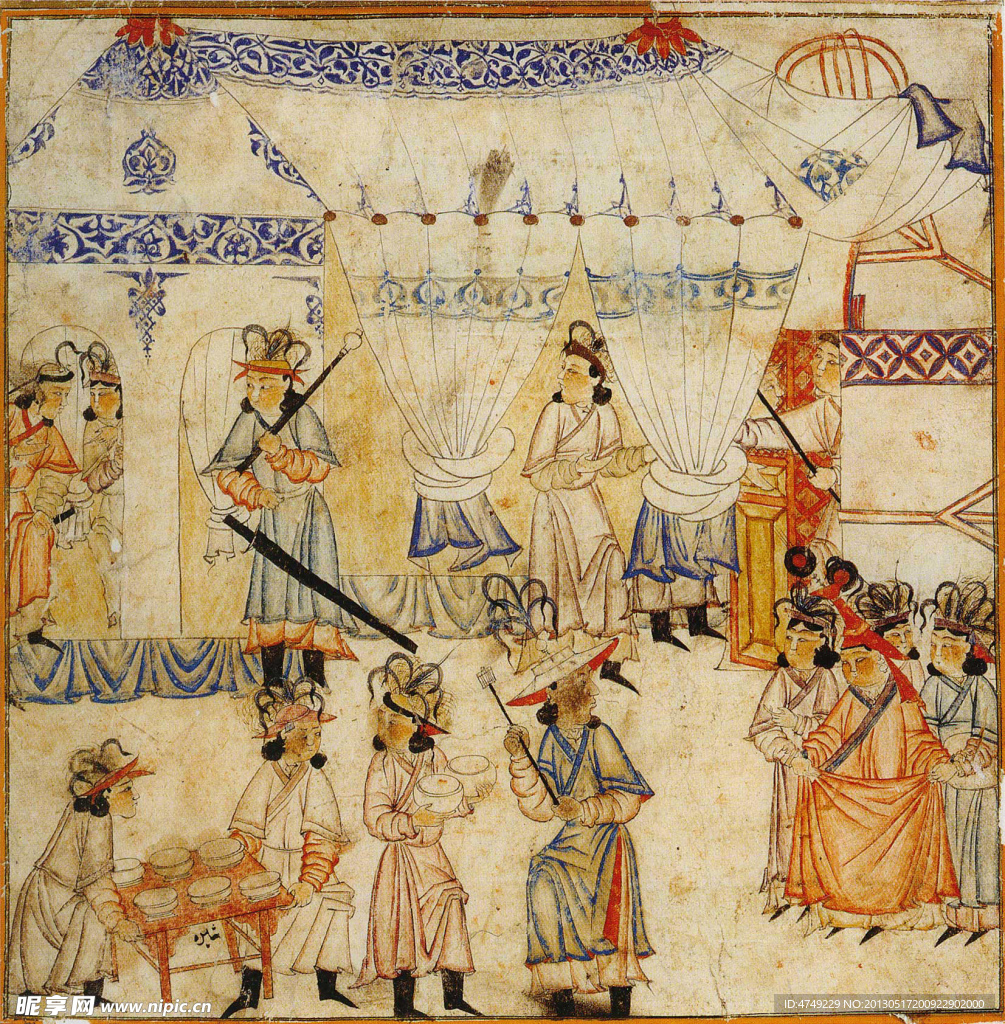 昵享网 www.nipic.cn
ID:4749229 NO:20130517200922902000